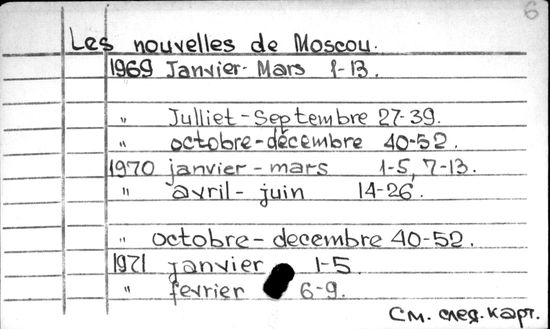 6
Les nouvelles de Moscou.
1969 Janvier-Mars 1-13.
" Julliet-Septembre 27-39.
" octobre-décembre 40-52.
1970 janvier-mars 1-5, 7-13.
" avril-juin 14-26.
" octobre-decembre 40-52.
1971 janvier 1-5.
" fevrier 6-9.
См. след. карт.